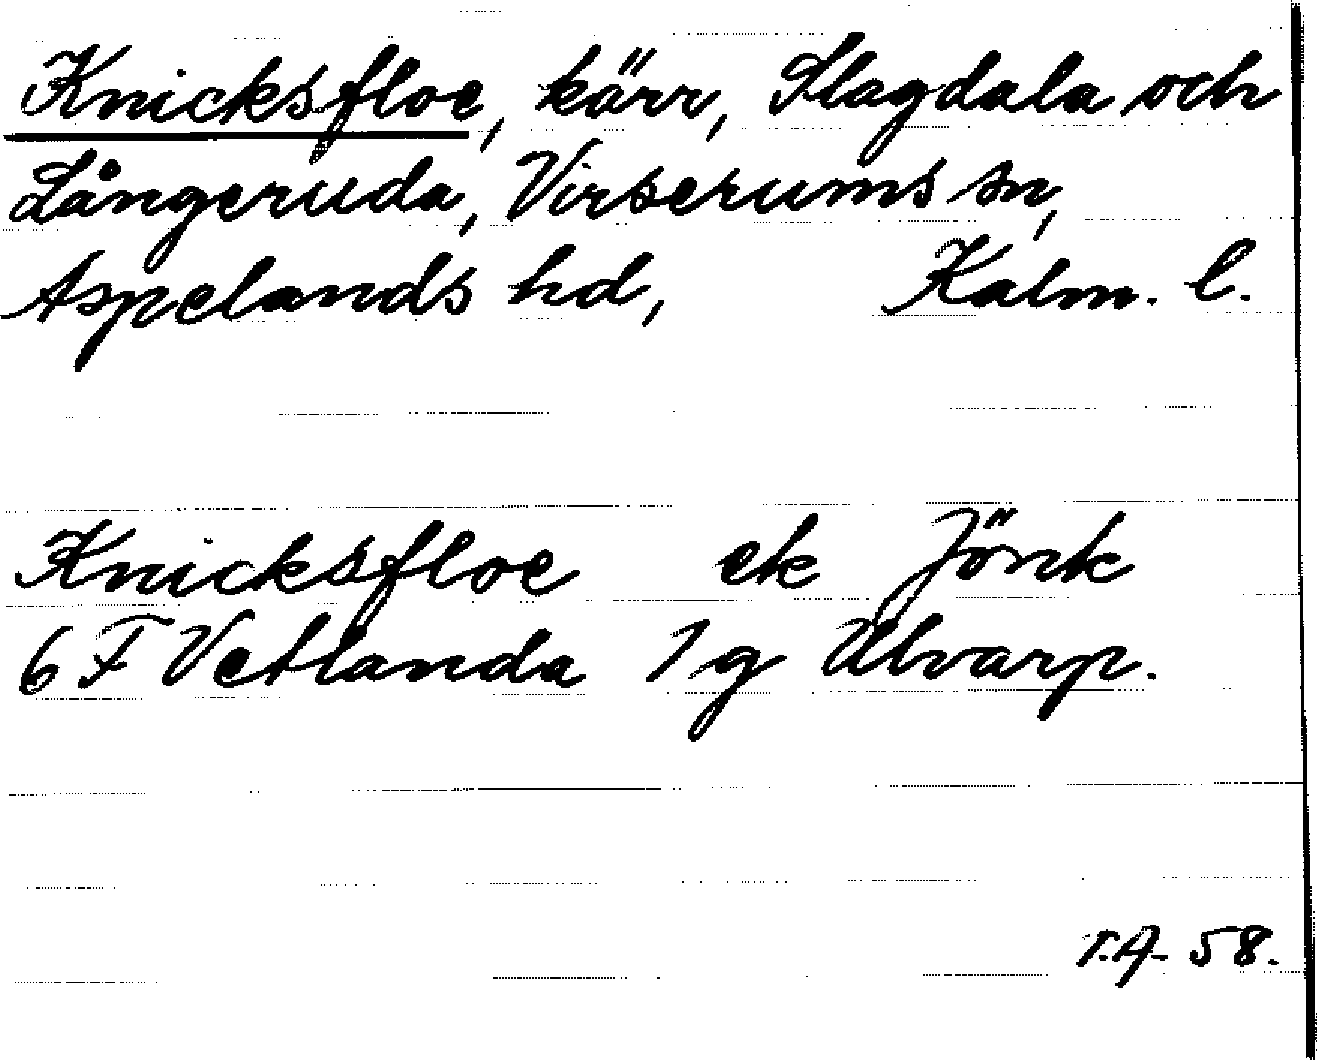 Knicksfloe, kärr, Slagdala och
Långeruda, Virserums sn,
Aspelands hd, Kalm. l.
Knicksfloe ek Jönk
6 F Vetlanda 1 g Ulvarp.
T.A. 58.